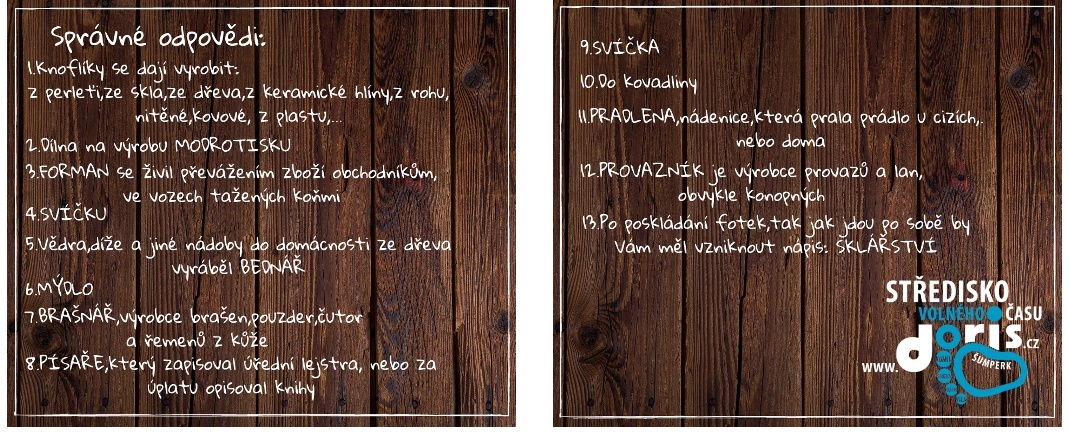 Správné odpovědi:
1.Knoflíky se dají vyrobit:
z perleti,ze skla,ze dřeva,z keramické hlíny,z rohu,
nitěné,kovové, z plastu,...
2.Dílna na výrobu MODROTISKU
3.FORMAN se živil převážením zboží obchodníkům,
ve vozech tažených koňmi
4.SVÍČKU
5.Vědra,díže a jiné nádoby do domácnosti ze dřeva
vyráběl BEDNÁŘ
6.MÝDLO
7.BRAŠNÁŘ,výrobce brašen,pouzder,čutor
a řemenů z kůže
8.PÍSAŘE,který zapisoval úřední lejstra, nebo za
úplatu opisoval knihy
9.SVÍČKA
10.Do kovadliny
11.PRADLENA,nádenice,která prala prádlo u cizích,.
nebo doma
12.PROVAZNÍK je výrobce provazů a lan,
obvykle konopných
13.Po poskládání fotek,tak jak jdou po sobě by
Vám měl vzniknout nápis: SKLÁŘSTVÍ
STŘEDISKO
VOLNÉHO ČASU
www.doris.cz
ŠUMPERK